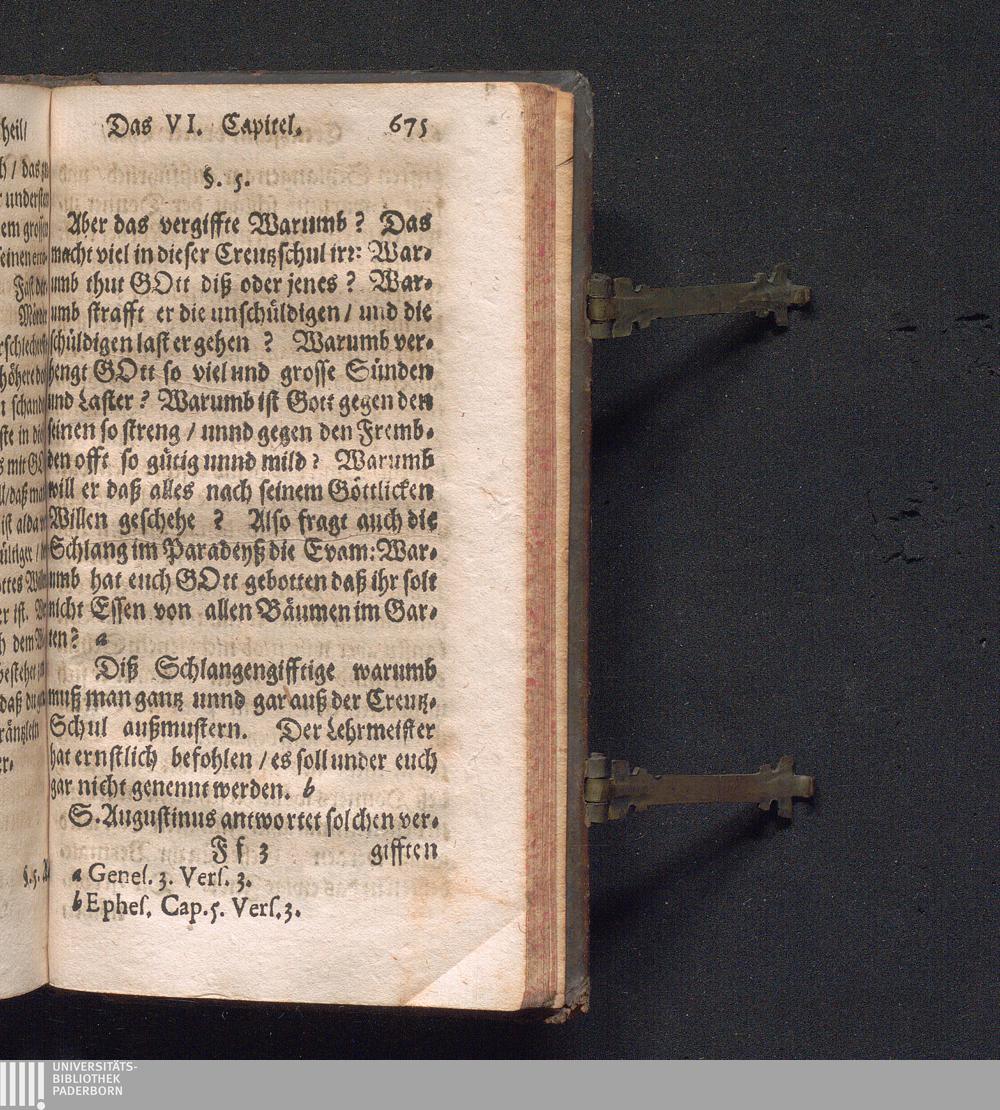 Das VI. Capitel. 675
§. 5.
Aber das vergiffte Warumb? Das
macht viel in dieser Creutzschul irr: War-
umb thut GOtt diß oder jenes? War-
umb strafft er die unschüldigen / und die
schüldigen last er gehen? Warumb ver-
hengt GOtt so viel und grosse Sünden
und Laster? Warumb ist Gott gegen den
seinen so streng / unnd gegen den Fremb-
den offt so gütig unnd mild? Warumb
will er daß alles nach seinem Göttlicken
Willen geschehe? Also fragt auch die
Schlang im Paradeyß die Evam: War-
umb hat euch GOtt gebotten daß ihr solt
nicht Essen von allen Bäumen im Gar-
ten? a
Diß Schlangengifftige warumb
muß man gantz unnd gar auß der Creutz-
Schul außmustern. Der Lehrmeister
hat ernstlich befohlen / es soll under euch
gar nicht genennt werden. b
S. Augustinus antwortet solchen ver-
Ff 3 gifften
a Genes. 3. Vers. 3.
b Ephes. Cap. 5. Vers. 3.
UNIVERSITÄTS-
BIBLIOTHEK
PADERBORN